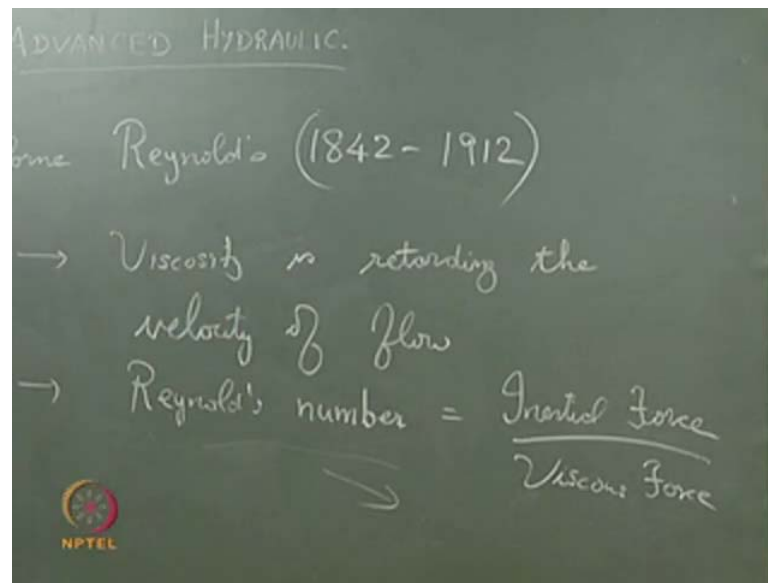 ADVANCED HYDRAULIC.
Reynold's (1842 - 1912)
→ Viscosity is retarding the
velocity of flow
→ Reynold's number = Inertial Force
Viscous Force
NPTEL